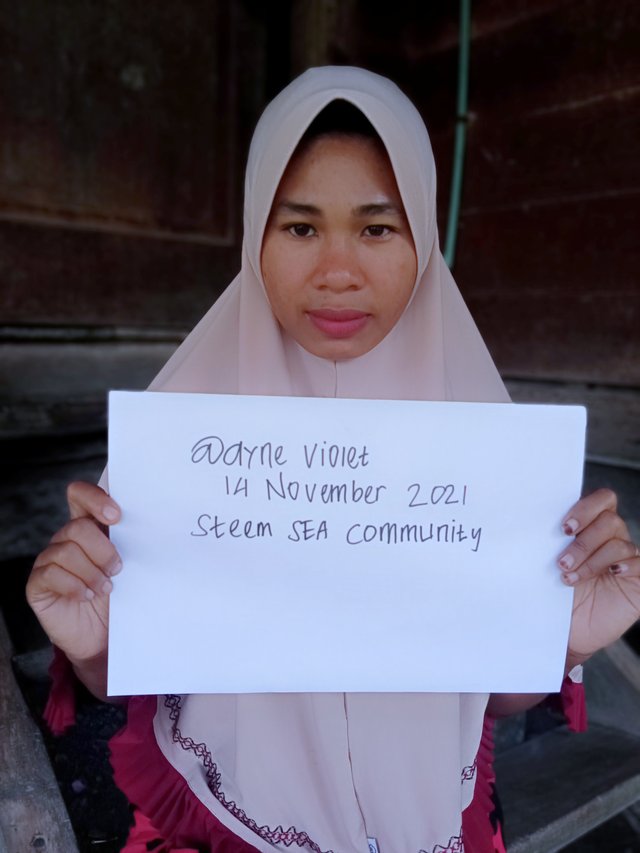 @ayne violet
14 November 2021
Steem SEA Community